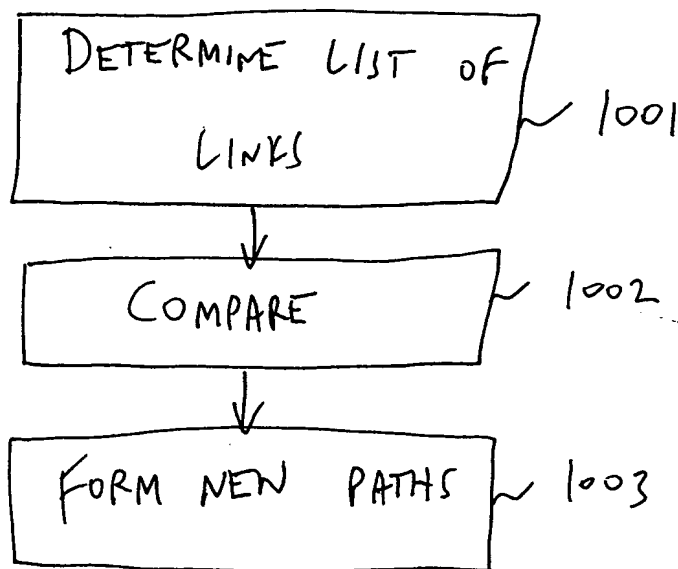 DETERMINE LIST OF
LINKS
1001
COMPARE
1002
FORM NEW PATHS
1003